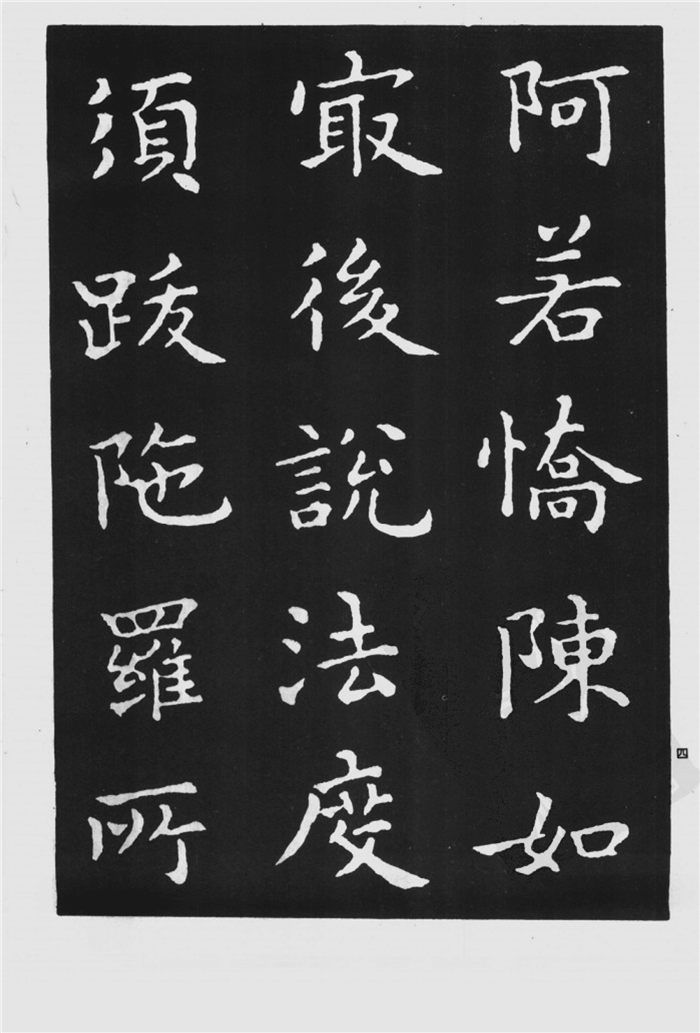 阿若憍陳如
冣後說法度
須跋陁羅所
四